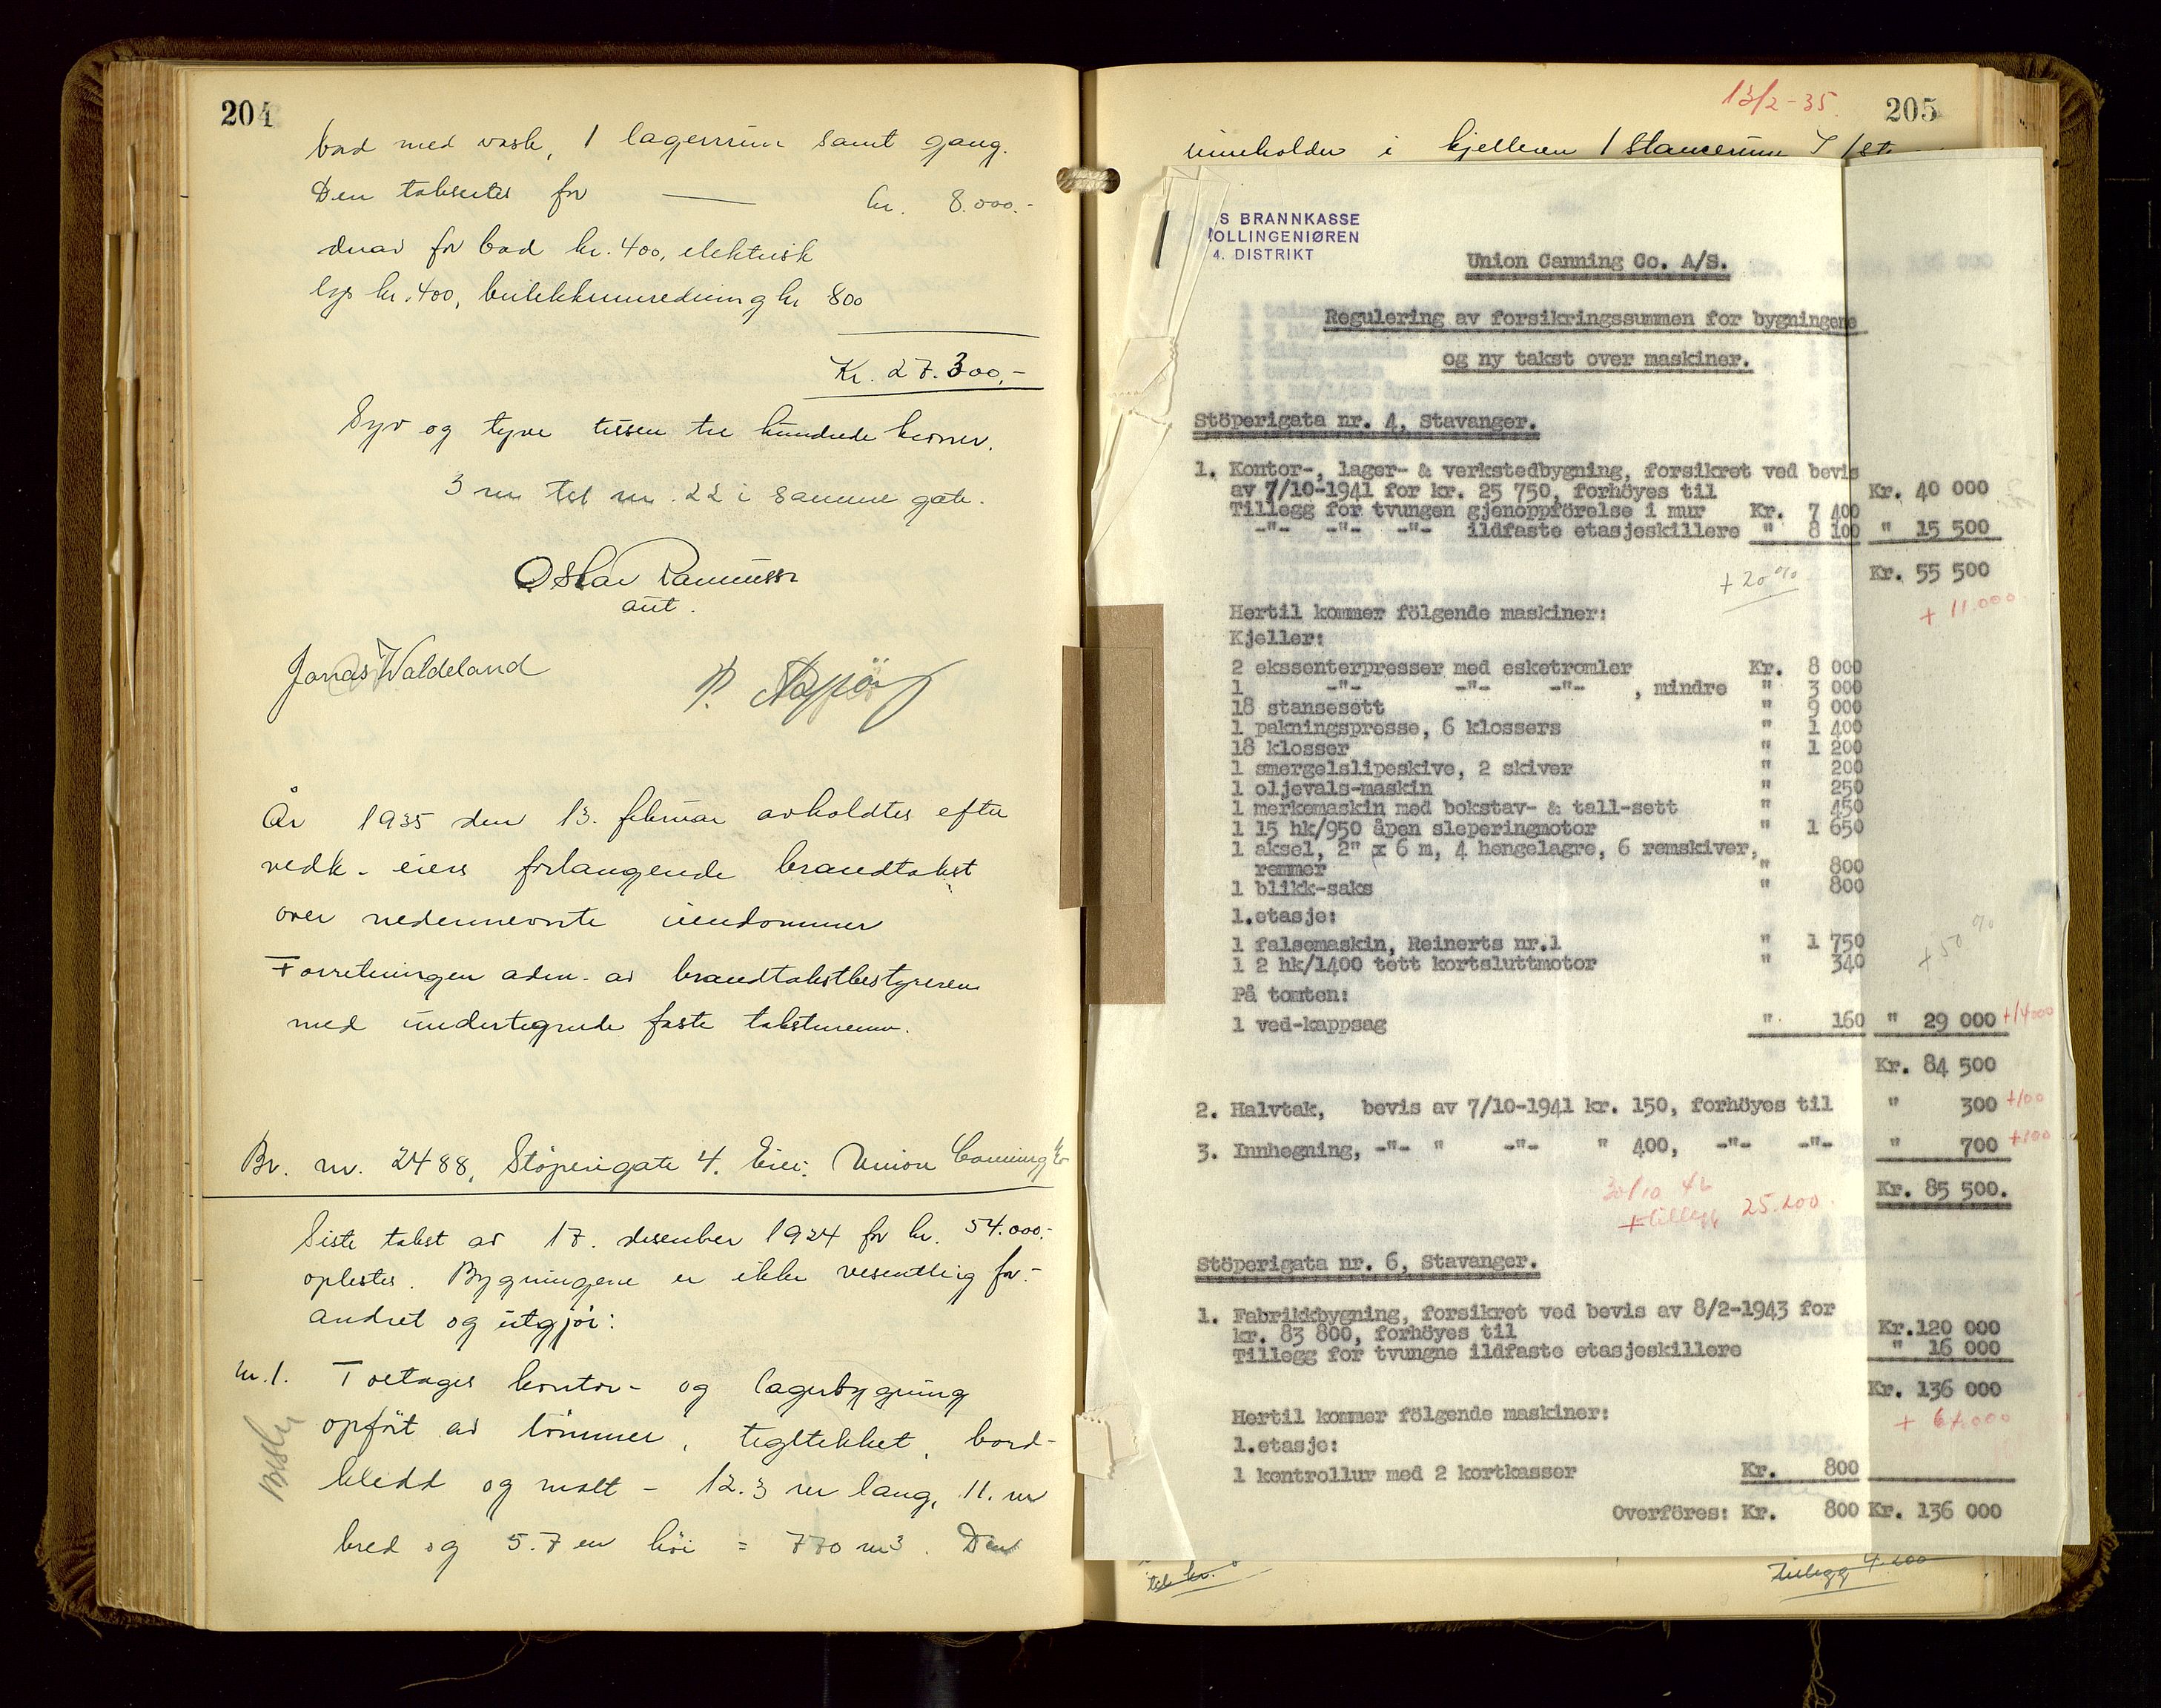 204
bad med vask, 1 lagerrum samt gang.
Den takseres for — kr. 8.000.-
derav for bad kr. 400, elektrisk
lys kr. 400, butikkinnredning kr 800
Kr. 27.300,-
Syv og tyve tusen tre hundrede kroner.
3 m til nr. 22 i samme gate.
Oskar Rasmussen
aut.
Jonas Waldeland
År 1935 den 13. februar avholdtes efter
vedk. eiers forlangende brandtakst
over nedennevnte eiendommer
Forretningen adm. av brandtakstbestyreren
med undertegnede faste takstmenn.
Br. nr. 2488, Støperigate 4. Eier: Union Canning Co
Siste takst av 17. desember 1924 for kr. 54.000.-
oplestes. Bygningene er ikke vesentlig for-
andret og utgjør:
nr. 1. Toetages kontor- og lagerbygning
opført av tømmer, tegltekket, bord-
kledd og malt - 12.3 m lang, 11. m
bred og 5.7 m høi = 770 m3. Den
13/2-35. 205
inneholder i kjelleren 1 stanserum
S BRANNKASSE
OLLINGENIØREN
4. DISTRIKT
Union Canning Co. A/S.
Regulering av forsikringssummen for bygningene
og ny takst over maskiner.
Stöperigata nr. 4, Stavanger.
1. Kontor-, lager- & verkstedbygning, forsikret ved bevis
av 7/10-1941 for kr. 25 750, forhöyes til Kr. 40 000
Tillegg for tvungen gjenoppförelse i mur Kr. 7 400
-"- -"- -"- ildfaste etasjeskillere " 8 100 " 15 500
+ 20 % Kr. 55 500
+ 11.000.
Hertil kommer fölgende maskiner:
Kjeller:
2 eksenterpresser med esketromler Kr. 8 000
1 -"- -"- -"- , mindre " 3 000
18 stansesett " 9 000
1 pakningspresse, 6 klossers " 1 400
18 klosser " 1 200
1 smergelslipeskive, 2 skiver " 200
1 oljevals-maskin " 250
1 merkemaskin med bokstav- & tall-sett " 450
1 15 hk/950 åpen sleperingmotor " 1 650
1 aksel, 2" x 6 m, 4 hengelagre, 6 remskiver,
remmer " 800
1 blikk-saks " 800
1.etasje:
1 falsemaskin, Reinerts nr.1 " 1 750
1 2 hk/1400 tett kortsluttmotor " 340
+ 50 %
På tomten:
1 ved-kappsag " 160 " 29 000 +14000
Kr. 84 500
2. Halvtak, bevis av 7/10-1941 kr. 150, forhöyes til " 300 +100
3. Innhegning, -"- " -"- " 400, -"- -"- " 700 +100
Kr. 85 500.
30/10 46
+ tillegg 25.200.
Stöperigata nr. 6, Stavanger.
1. Fabrikkbygning, forsikret ved bevis av 8/2-1943 for
kr. 83 800, forhöyes til Kr.120 000
Tillegg for tvungne ildfaste etasjeskillere " 16 000
Kr. 136 000
Hertil kommer fölgende maskiner:
1.etasje:
1 kontrollur med 2 kortkasser Kr. 800
Overföres: Kr. 800 Kr. 136 000
Tillegg 4.200